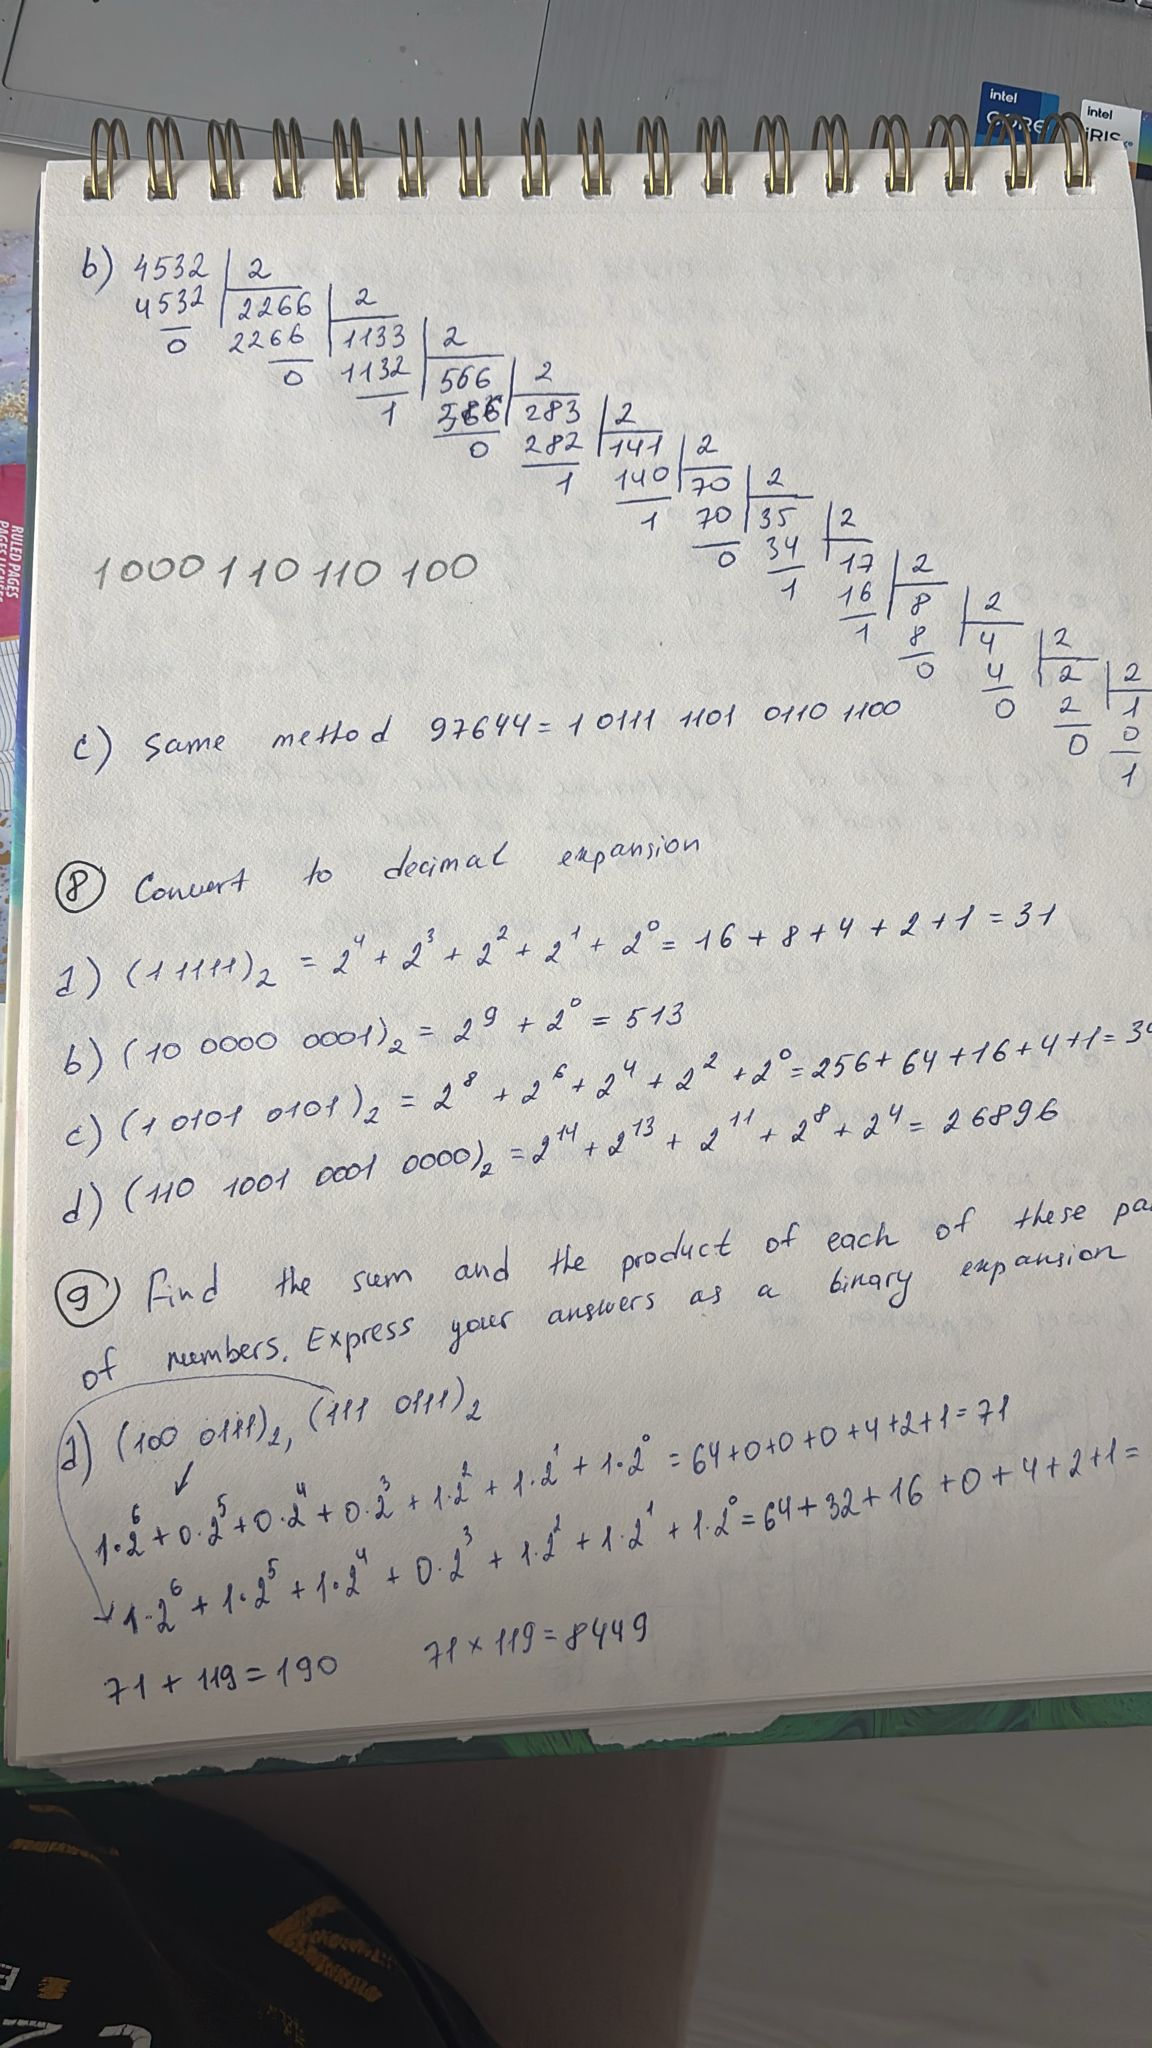 intel
CORE
intel
iRIS xe
RULED PAGES
b) 4532 | 2
4532 | 2266 | 2
0 2266 | 1133 | 2
0 1132 | 566 | 2
1 566 | 283 | 2
0 282 | 141 | 2
1 140 | 70 | 2
1 70 | 35 | 2
0 34 | 17 | 2
1 16 | 8 | 2
1 8 | 4 | 2
0 4 | 2 | 2
0 2 | 1
0 0
1
1000 110 110 100
c) Same method 97644 = 1 0111 1101 0110 1100
8 Convert to decimal expansion
a) (1 1111)₂ = 2⁴ + 2³ + 2² + 2¹ + 2⁰ = 16 + 8 + 4 + 2 + 1 = 31
b) (10 0000 0001)₂ = 2⁹ + 2⁰ = 513
c) (1 0101 0101)₂ = 2⁸ + 2⁶ + 2⁴ + 2² + 2⁰ = 256 + 64 + 16 + 4 + 1 = 34
d) (110 1001 0001 0000)₂ = 2¹⁴ + 2¹³ + 2¹¹ + 2⁸ + 2⁴ = 26896
9 Find the sum and the product of each of these pa
of numbers. Express your answers as a binary expansion
a) (100 0111)₂, (111 0111)₂
1·2⁶ + 0·2⁵ + 0·2⁴ + 0·2³ + 1·2² + 1·2¹ + 1·2⁰ = 64+0+0+0+4+2+1=71
1·2⁶ + 1·2⁵ + 1·2⁴ + 0·2³ + 1·2² + 1·2¹ + 1·2⁰ = 64+32+16+0+4+2+1=
71 + 119 = 190 71 × 119 = 8449